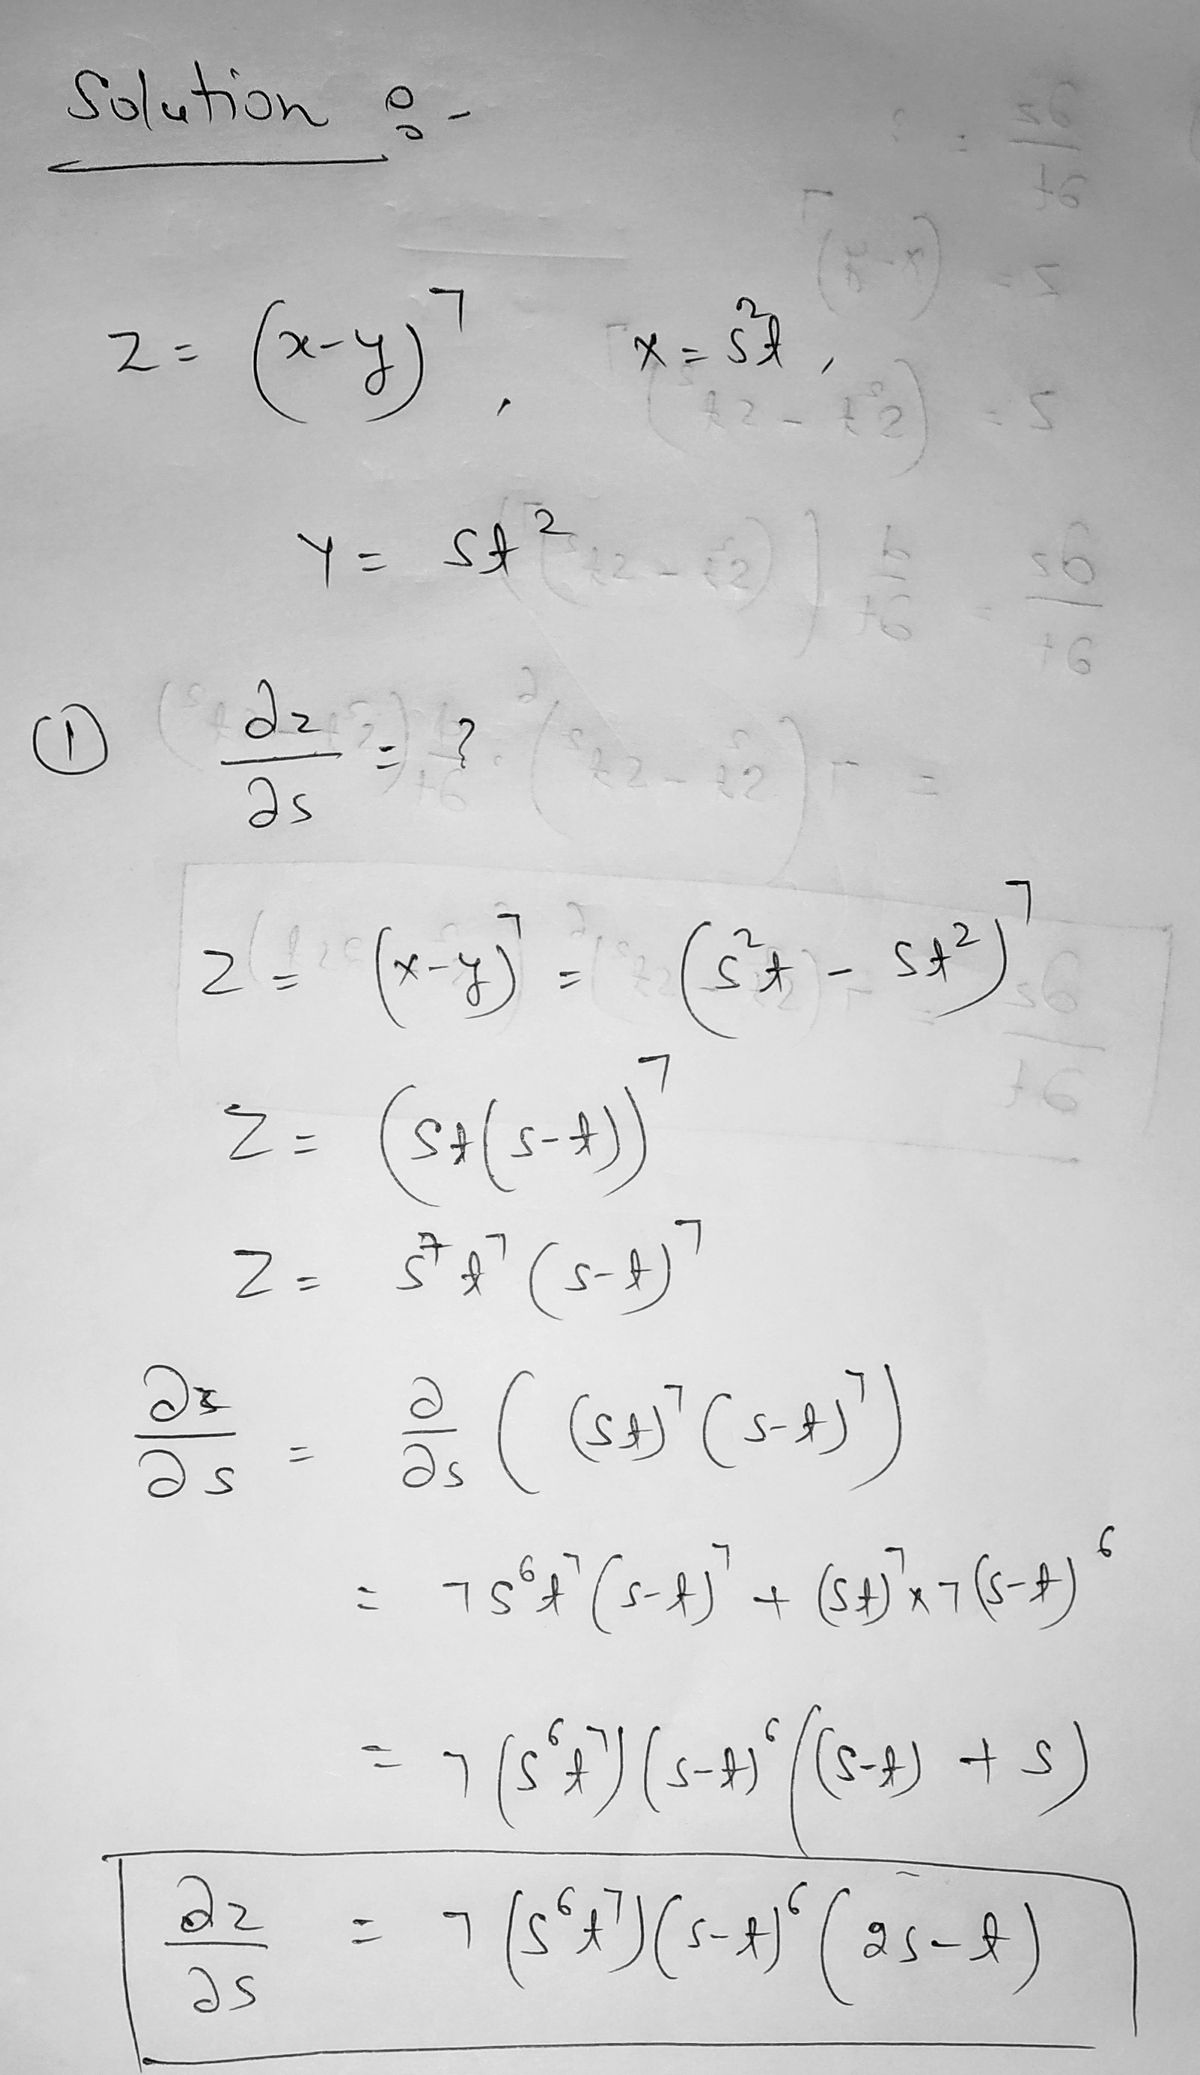 Solution :-
z = (x-y)⁷, x = s²t,
y = st²
① ∂z/∂s = ?
z = (x-y)⁷ = (s²t - st²)⁷
z = (st(s-t))⁷
z = s⁷t⁷(s-t)⁷
∂z/∂s = ∂/∂s ((st)⁷(s-t)⁷)
= 7s⁶t⁷(s-t)⁷ + (st)⁷×7(s-t)⁶
= 7(s⁶t⁷)(s-t)⁶((s-t) + s)
∂z/∂s = 7(s⁶t⁷)(s-t)⁶(2s-t)